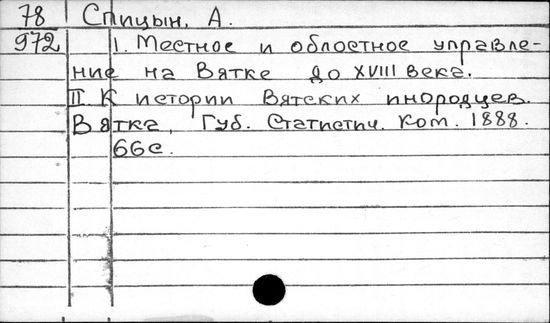 78 Спицын, А.
972 I. Местное и областное управле-
ние на Вятке до XVIII века.
II. К истории Вятских инородцев.
Вятка, Губ. Статистич. Ком. 1888.
66с.